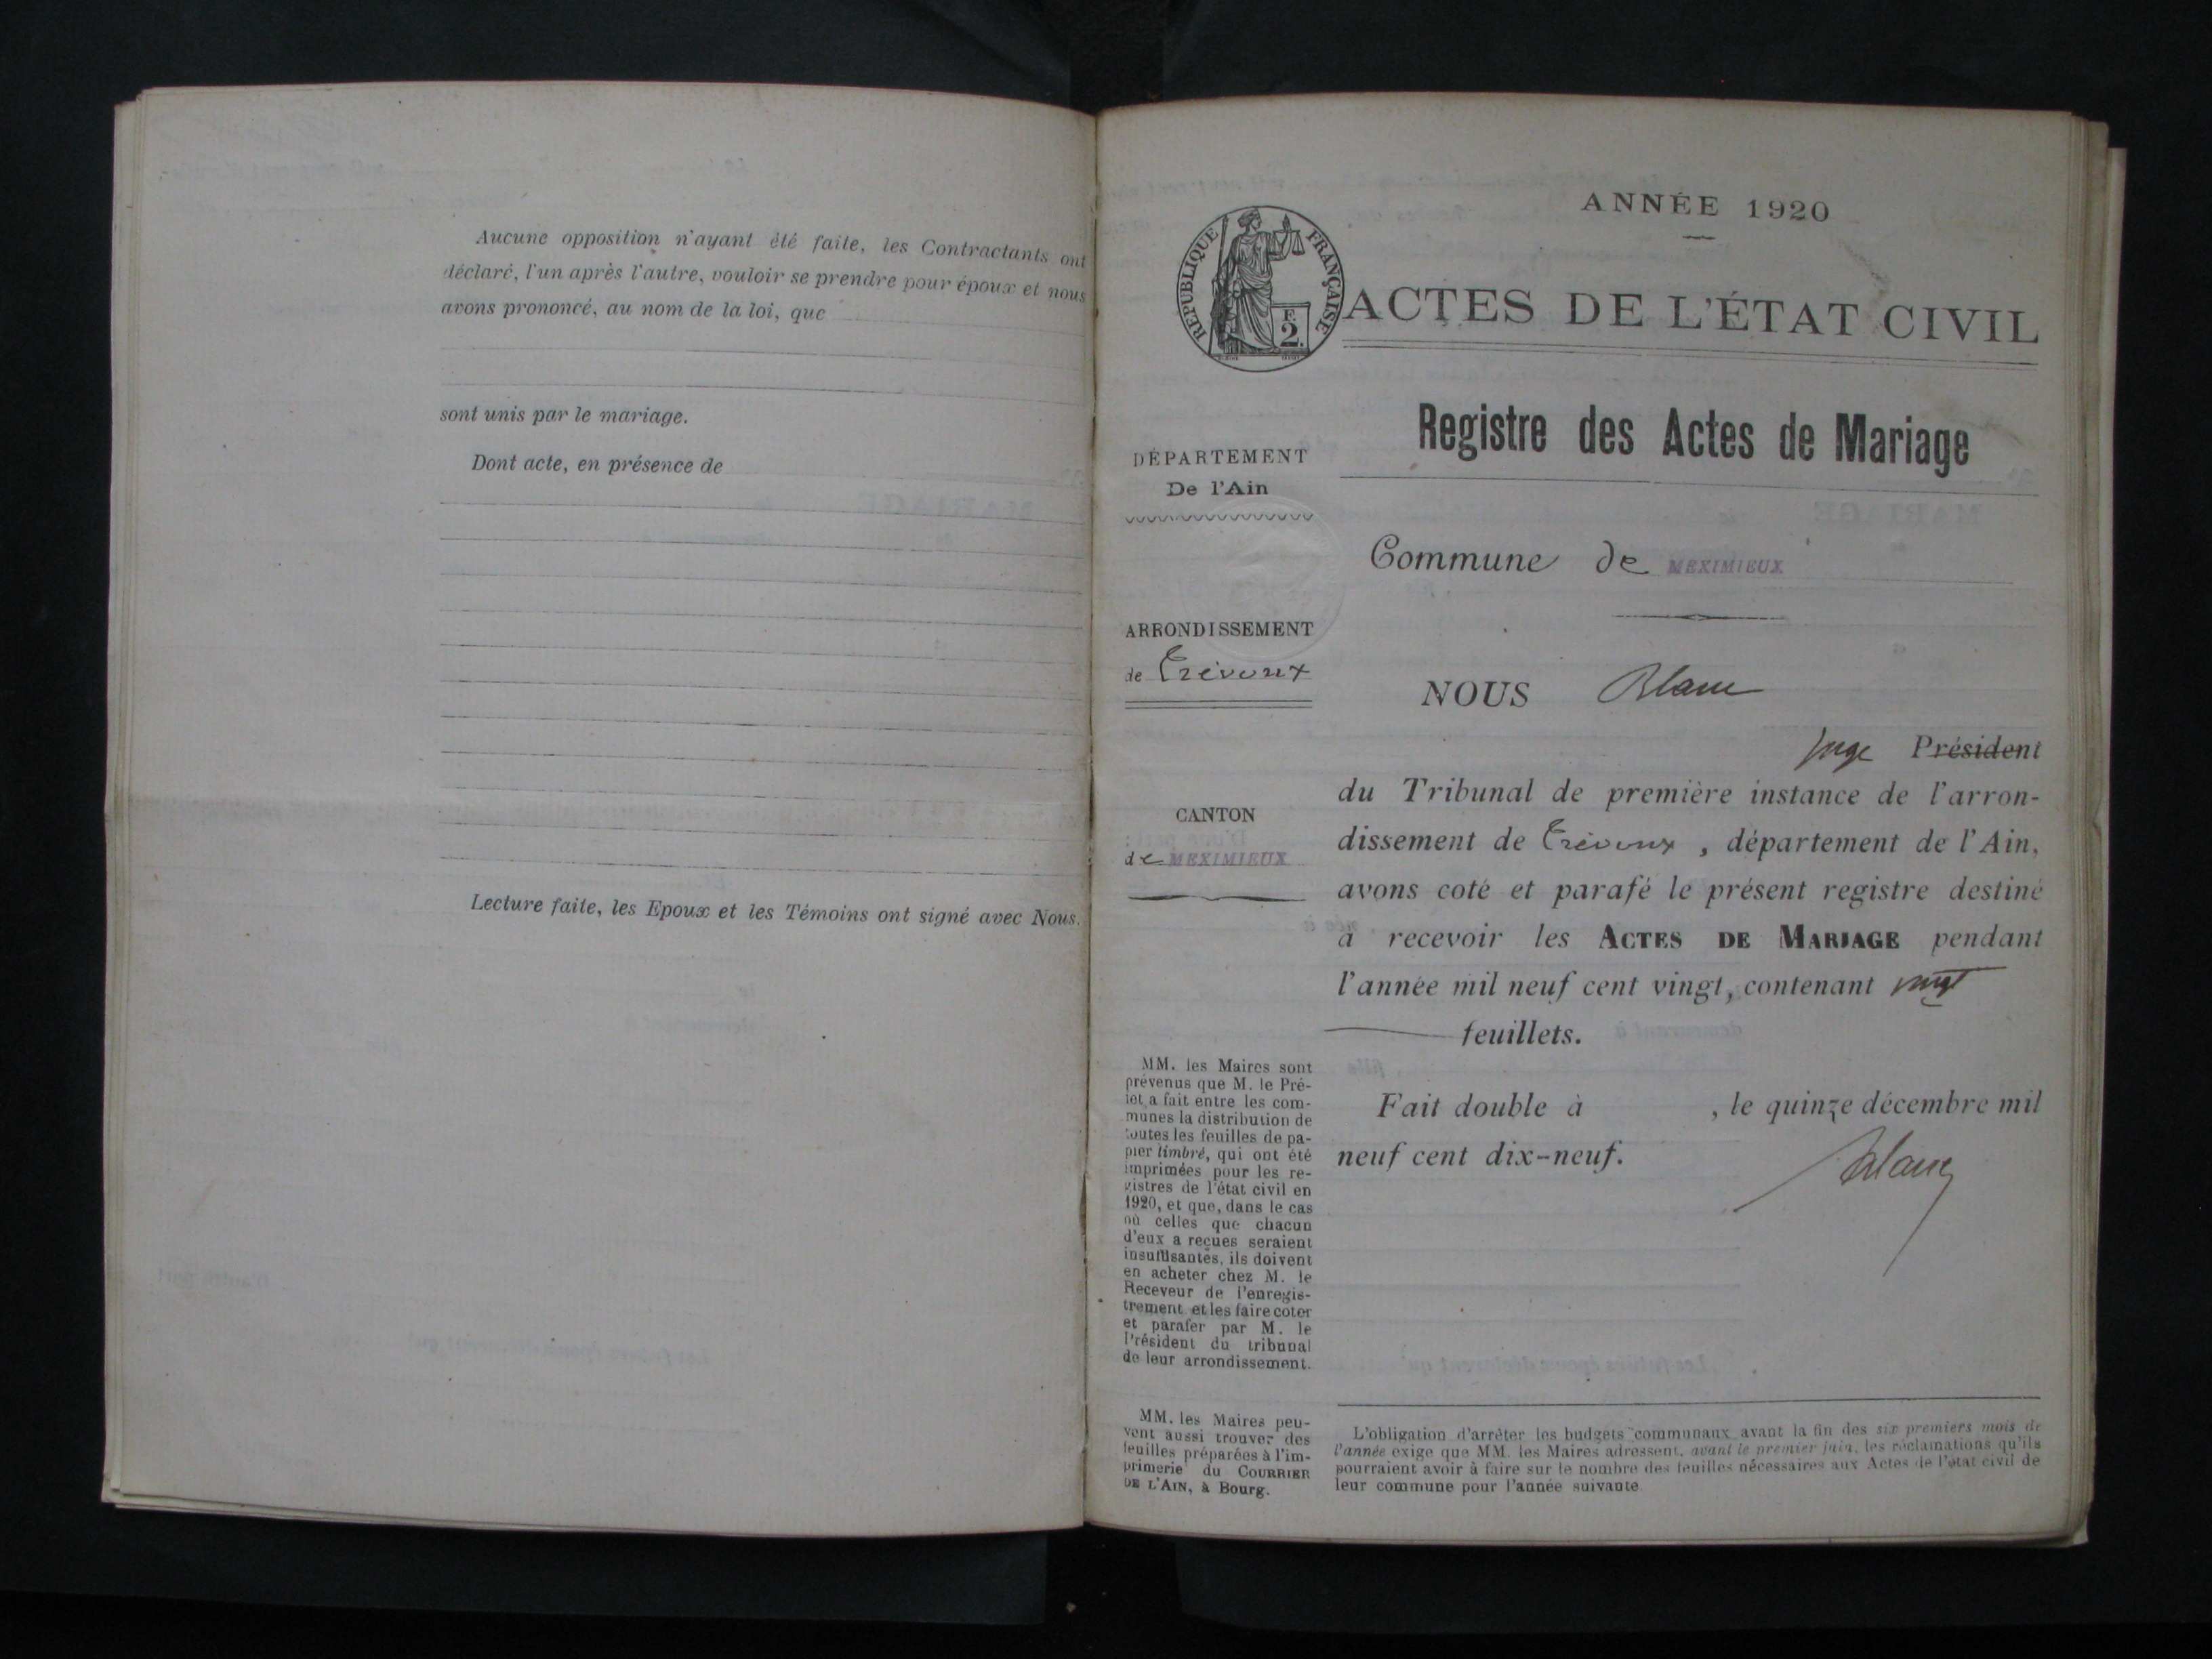 Aucune opposition n'ayant été faite, les Contractants ont
déclaré, l'un après l'autre, vouloir se prendre pour époux et nous
avons prononcé, au nom de la loi, que
sont unis par le mariage.
Dont acte, en présence de
Lecture faite, les Epoux et les Témoins ont signé avec Nous.
ANNÉE 1920
RÉPUBLIQUE FRANÇAISE
F.
2.
ACTES DE L'ÉTAT CIVIL
Registre des Actes de Mariage
DÉPARTEMENT
De l'Ain
Commune de MEXIMIEUX
ARRONDISSEMENT
de Trévoux
NOUS Blanc
Juge Président
du Tribunal de première instance de l'arron-
dissement de Trévoux, département de l'Ain,
avons coté et parafé le présent registre destiné
à recevoir les ACTES DE MARIAGE pendant
l'année mil neuf cent vingt, contenant vingt
feuillets.
Fait double à , le quinze décembre mil
neuf cent dix-neuf.
Blanc
CANTON
de MEXIMIEUX
MM. les Maires sont
prévenus que M. le Pré-
fet a fait entre les com-
munes la distribution de
toutes les feuilles de pa-
pier timbré, qui ont été
imprimées pour les re-
gistres de l'état civil en
1920, et que, dans le cas
où celles que chacun
d'eux a reçues seraient
insuffisantes, ils doivent
en acheter chez M. le
Receveur de l'enregis-
trement et les faire coter
et parafer par M. le
Président du tribunal
de leur arrondissement.
MM. les Maires peu-
vent aussi trouver des
feuilles préparées à l'im-
primerie du COURRIER
DE L'AIN, à Bourg.
L'obligation d'arrêter les budgets communaux avant la fin des six premiers mois de
l'année exige que MM. les Maires adressent, avant le premier juin, les réclamations qu'ils
pourraient avoir à faire sur le nombre des feuilles nécessaires aux Actes de l'état civil de
leur commune pour l'année suivante